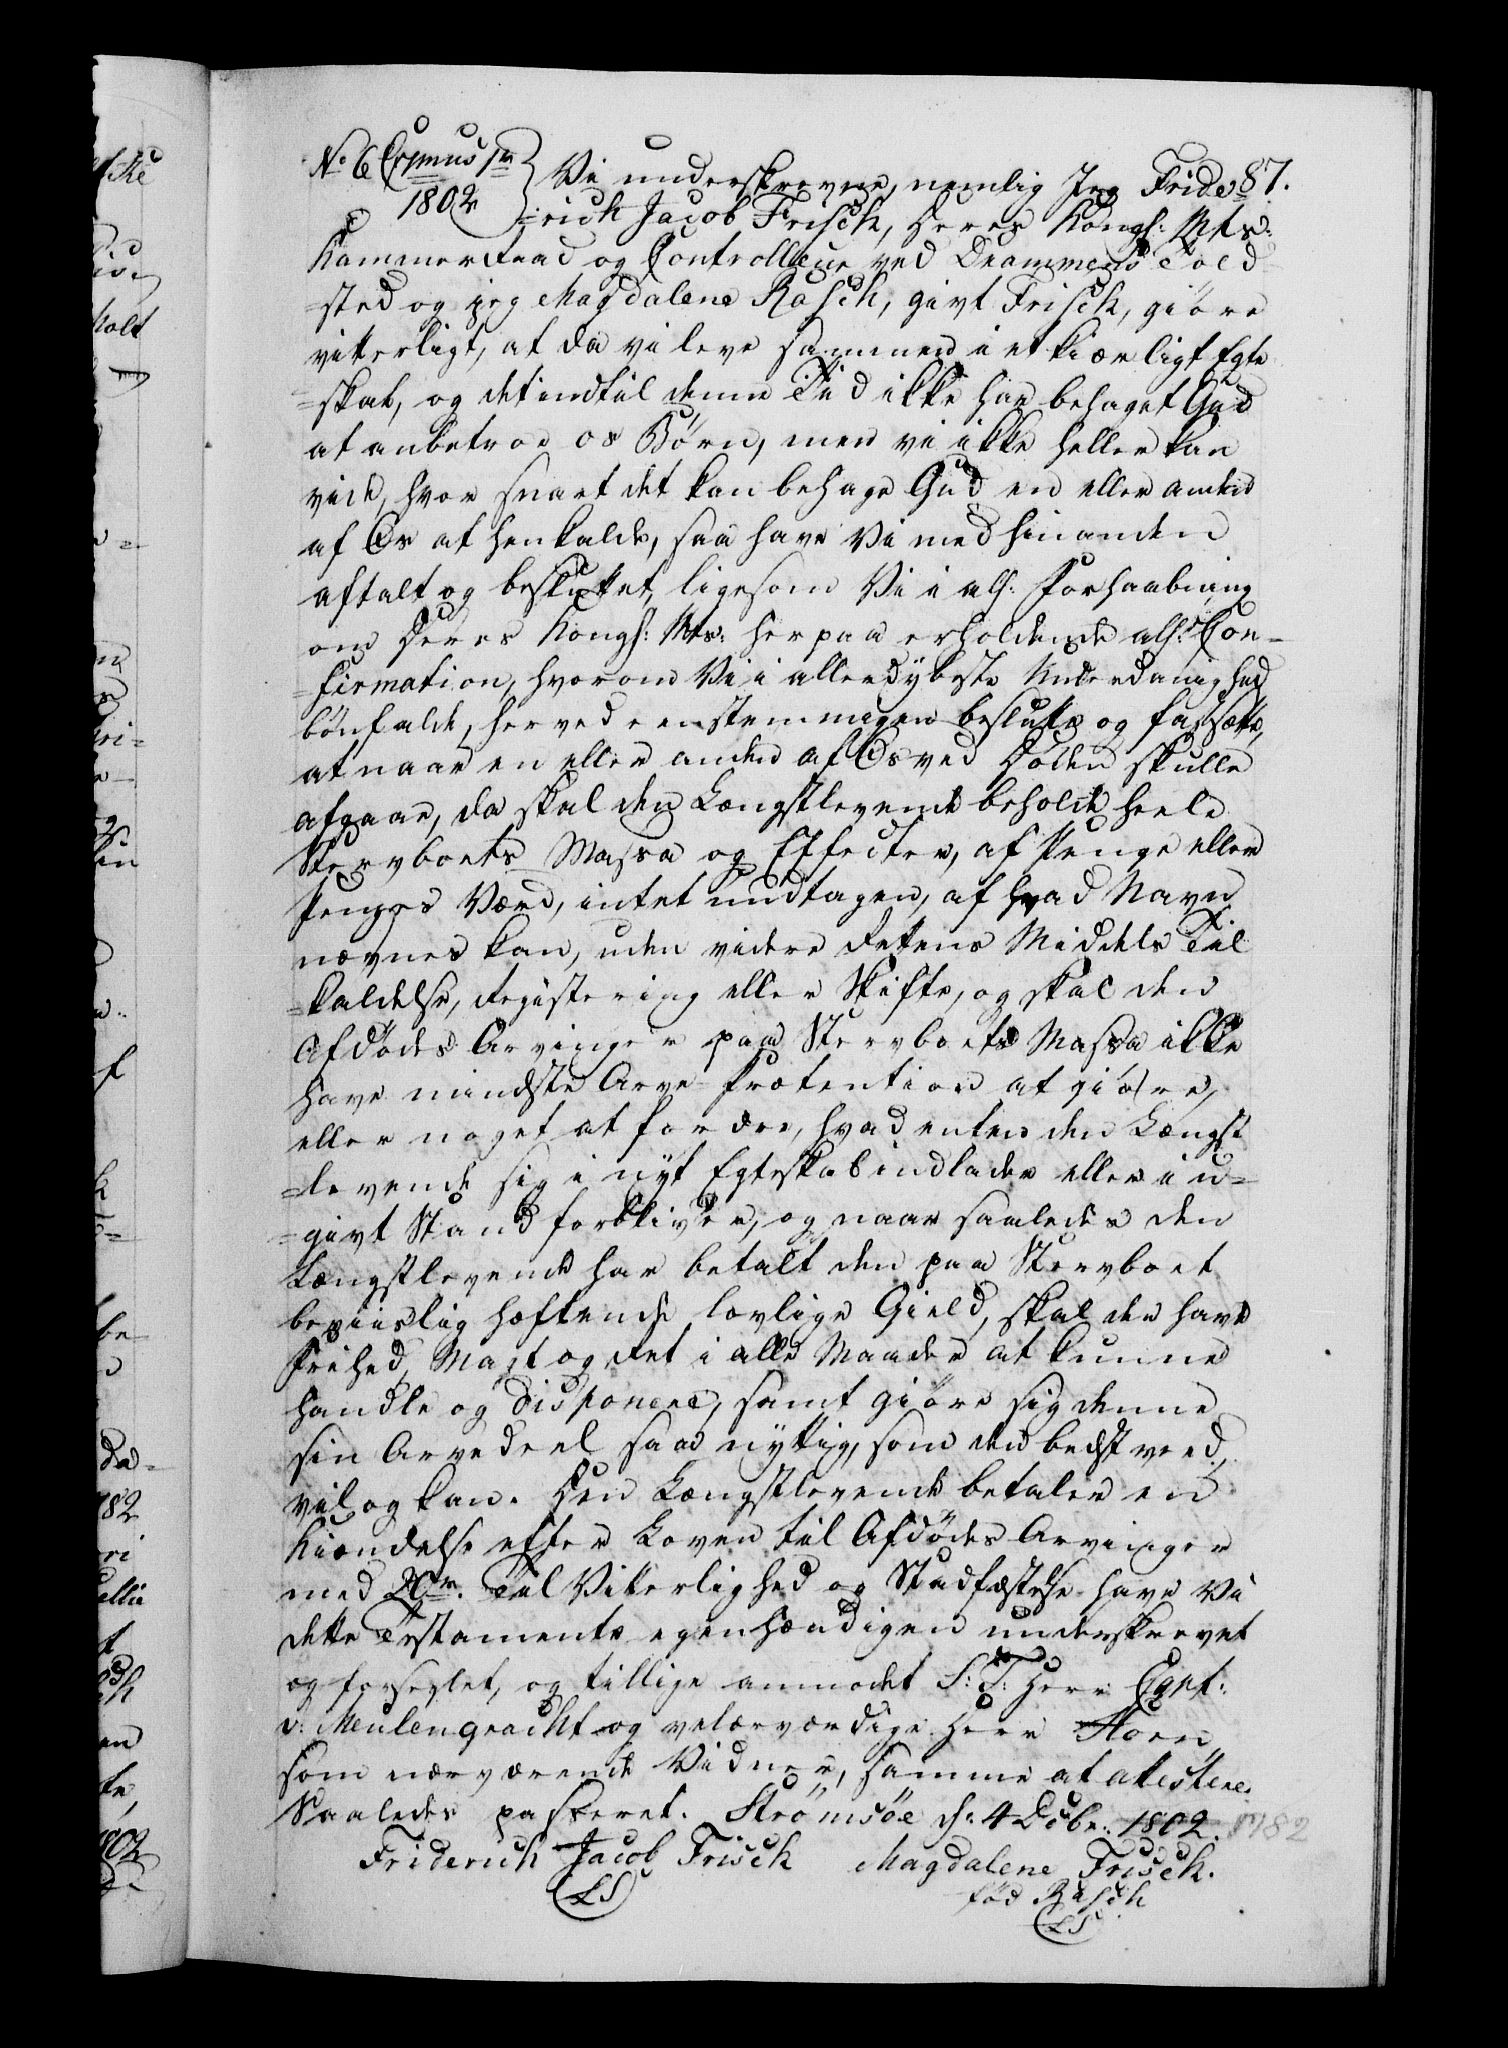 87.
No 6 Copmus 1rh
1802
Vi underskrevne, nemlig Jeg Fride-
=rich Jacob Frisch, Deres Kongl: Mts:
Kammerraad og Controlleur ved Drammens Told
=sted og jeg Magdalene Rasch, givt Frisch, giöre
vitterligt, at da vi leve sammen i et kiærligt Egte
=skab, og det indtil denne Tid ikke har behaget Gud
at anbetroe os Børn, men vi ikke heller kan
vide, hvor snart det kan behage Gud en eller anden
af Os at henkalde, saa have Vi med hinanden
aftalt og besluttet, ligesom Vi i all: Forhaabning
om Deres Kongl: Mts: herpaa erholdende all: Con=
=firmation, hvorom Vi i allerdybeste Underdanighed
bönfalde, herved eenstemmigen beslutte og fastsætte,
at naar en eller anden af Os ved Döden skulle
afgaae, da skal den Længstlevende beholde heele
Stervboets Massa og Effecter, af Penge eller
Penges Værd, intet undtagen, af hvad Navn
nævnes kan, uden videre Rettens Middels Til
=kaldelse, Registering eller Skifte, og skal den
Afdödes Arvinger paa Stervboets Massa ikke
have mindste Arve-Prætention at giöre,
eller noget at fordre, hvad enten den Længst
=levende sig i nyt Egteskab indlader eller i u=
=givt Stand forbliver, og naar saaledes den
Længstlevende har betalt den paa Stervboet
beviislig hæftende lovlige Gield, skal den have
Frihed, Magt og Ret i alle Maader at kunne
handle og disponere, samt giöre sig denne
sin Arvedeel saa nyttig, som den bedst veed,
vil og kan. Den Længstlevende betaler en
Kiændelse efter Loven til Afdödes Arvinger
med 20 rd. Til Vitterlighed og Stadfæstelse have Vi
dette Testamente egenhændigen underskrevet
og forseglet, og tillige anmodet S: T: Herr Capt:
v: Meulengracht og velærværdige Herr Horn
som nærværende Vidner, samme at attestere.
Saaledes passeret. Strömsöe d: 4 Dcbr: 1802. 1782
Friderich Jacob Frisch Magdalene Frisch.
(LS) föd Rasch
(LS)